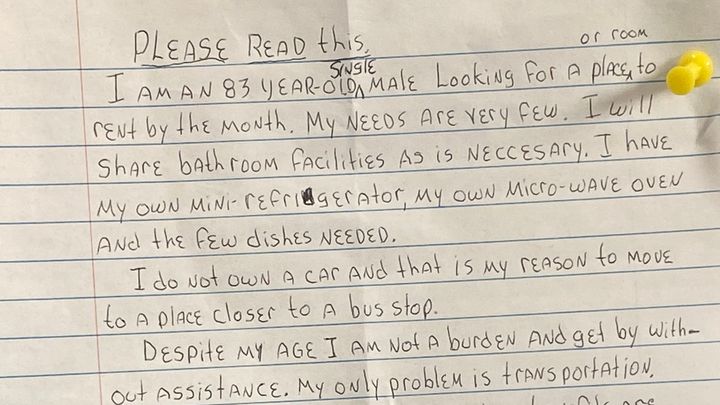 PLEASE READ this.
or room
SINGLE
I AM AN 83 YEAR-OLD MALE LOOKING FOR A PLACE to
rENt by thE MONth. MY NEEDS ArE VEry FEW. I will
ShArE bAthroom FAcilitiES AS iS NECCESARY. I hAVE
MY OWN MiNi-rEFrigErAtor, MY OWN Micro-WAVE OVEN
AND thE FEW diShES NEEDED.
I do Not OWN A CAr AND thAt iS MY rEASON to MOVE
to A plAcE cloSEr to A buS Stop.
DESpitE MY AGE I AM Not A burdEN AND gEt by With-
out ASSiStANcE. MY oNly problEM iS trANSportAtioN.